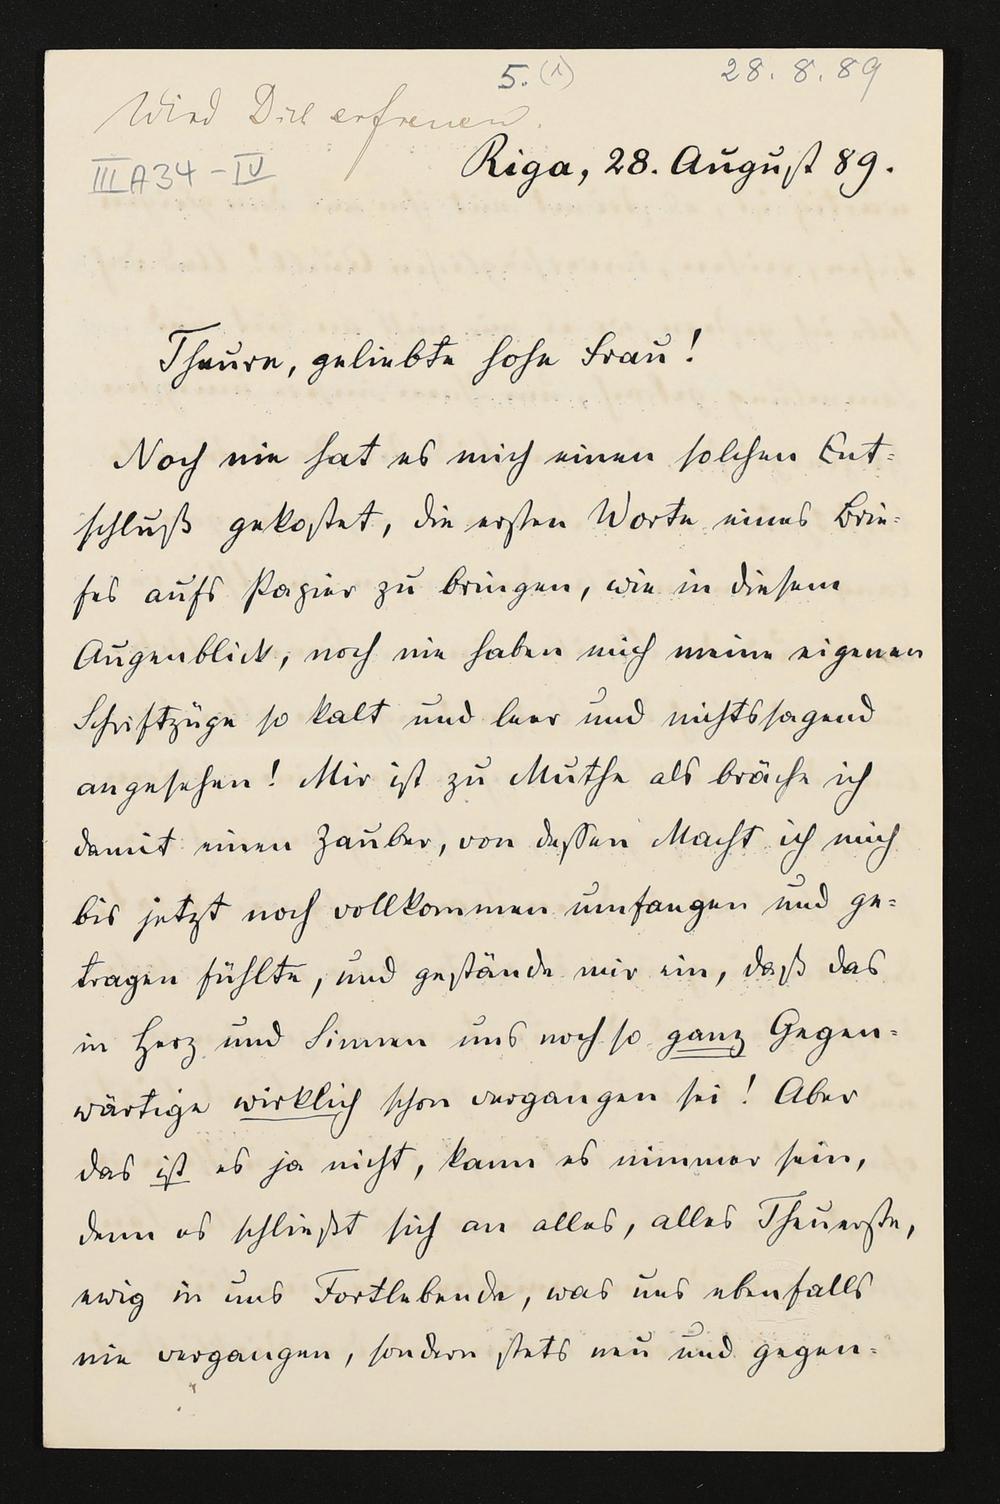 5. (1)
28. 8. 89
Wird Dich erfreuen.
III A 34 - IV
Riga, 28. August 89.
Theure, geliebte hohe Frau!
Noch nie hat es mich einen solchen Ent=
schluß gekostet, die ersten Worte eines Brie=
fes aufs Papier zu bringen, wie in diesem
Augenblick, noch nie haben mich meine eigenen
Schriftzüge so kalt und leer und nichtssagend
angesehen! Mir ist zu Muthe als bräche ich
damit einen Zauber, von dessen Macht ich mich
bis jetzt noch vollkommen umfangen und ge=
tragen fühlte, und gestände mir ein, daß das
in Herz und Sinnen uns noch so ganz Gegen=
wärtige wirklich schon vergangen sei! Aber
das ist es ja nicht, kann es nimmer sein,
denn es schließt sich an alles, alles Theuerste,
ewig in uns Fortlebende, was uns ebenfalls
nie vergangen, sondern stets neu und gegen=